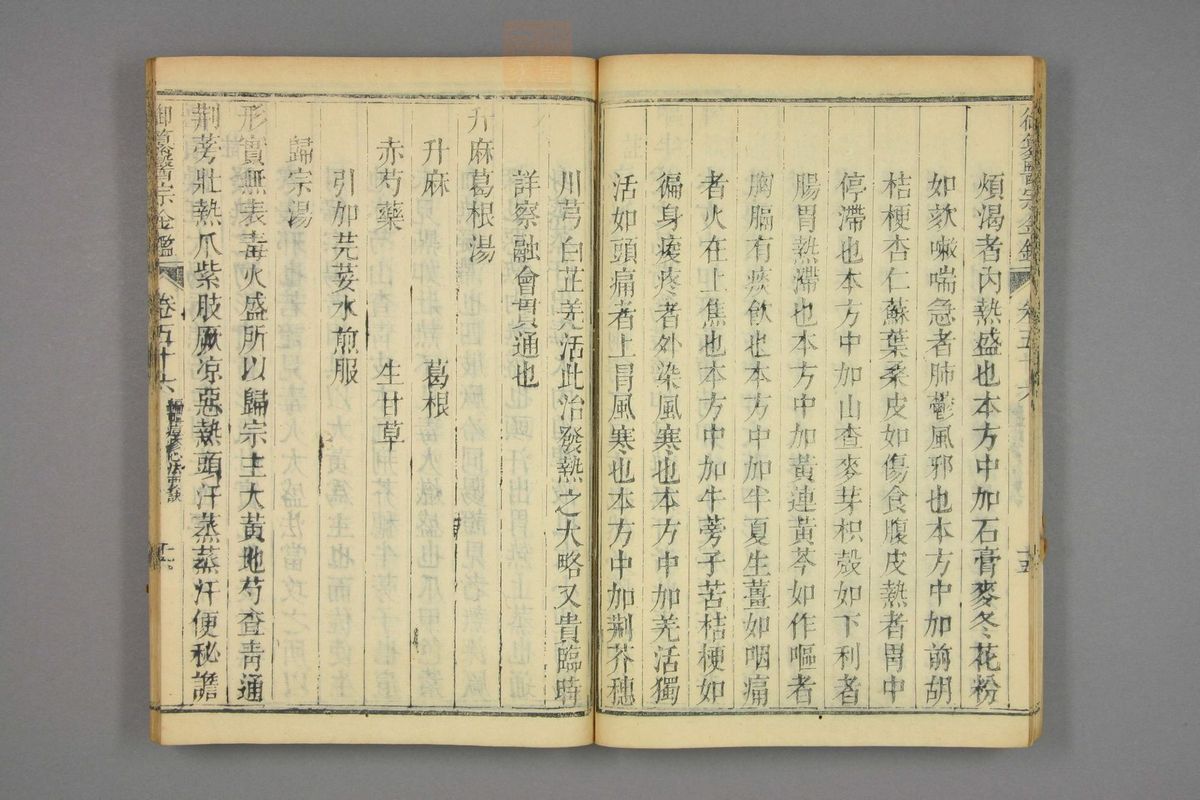 御纂醫宗金鑑 卷五十六 十五
煩渴者內熱盛也本方中加石膏麥冬花粉
如欬嗽喘急者肺鬱風邪也本方中加前胡
桔梗杏仁蘇葉桑皮如傷食腹皮熱者胃中
停滯也本方中加山查麥芽枳殼如下利者
腸胃熱滯也本方中加黃蓮黃芩如作嘔者
胸膈有痰飲也本方中加半夏生薑如咽痛
者火在上焦也本方中加牛蒡子苦桔梗如
徧身痠疼者外染風寒也本方中加羌活獨
活如頭痛者上冒風寒也本方中加荆芥穗
川芎白芷羌活此治發熱之大略又貴臨時
詳察融會貫通也
升麻葛根湯
升麻 葛根
赤芍藥 生甘草
引加芫荽水煎服
歸宗湯
形實無表毒火盛所以歸宗主大黃地芍查靑通
荆蒡壯熱爪紫肢厥凉惡熱頭汗蒸蒸汗便秘譫
御纂醫宗金鑑 卷五十六